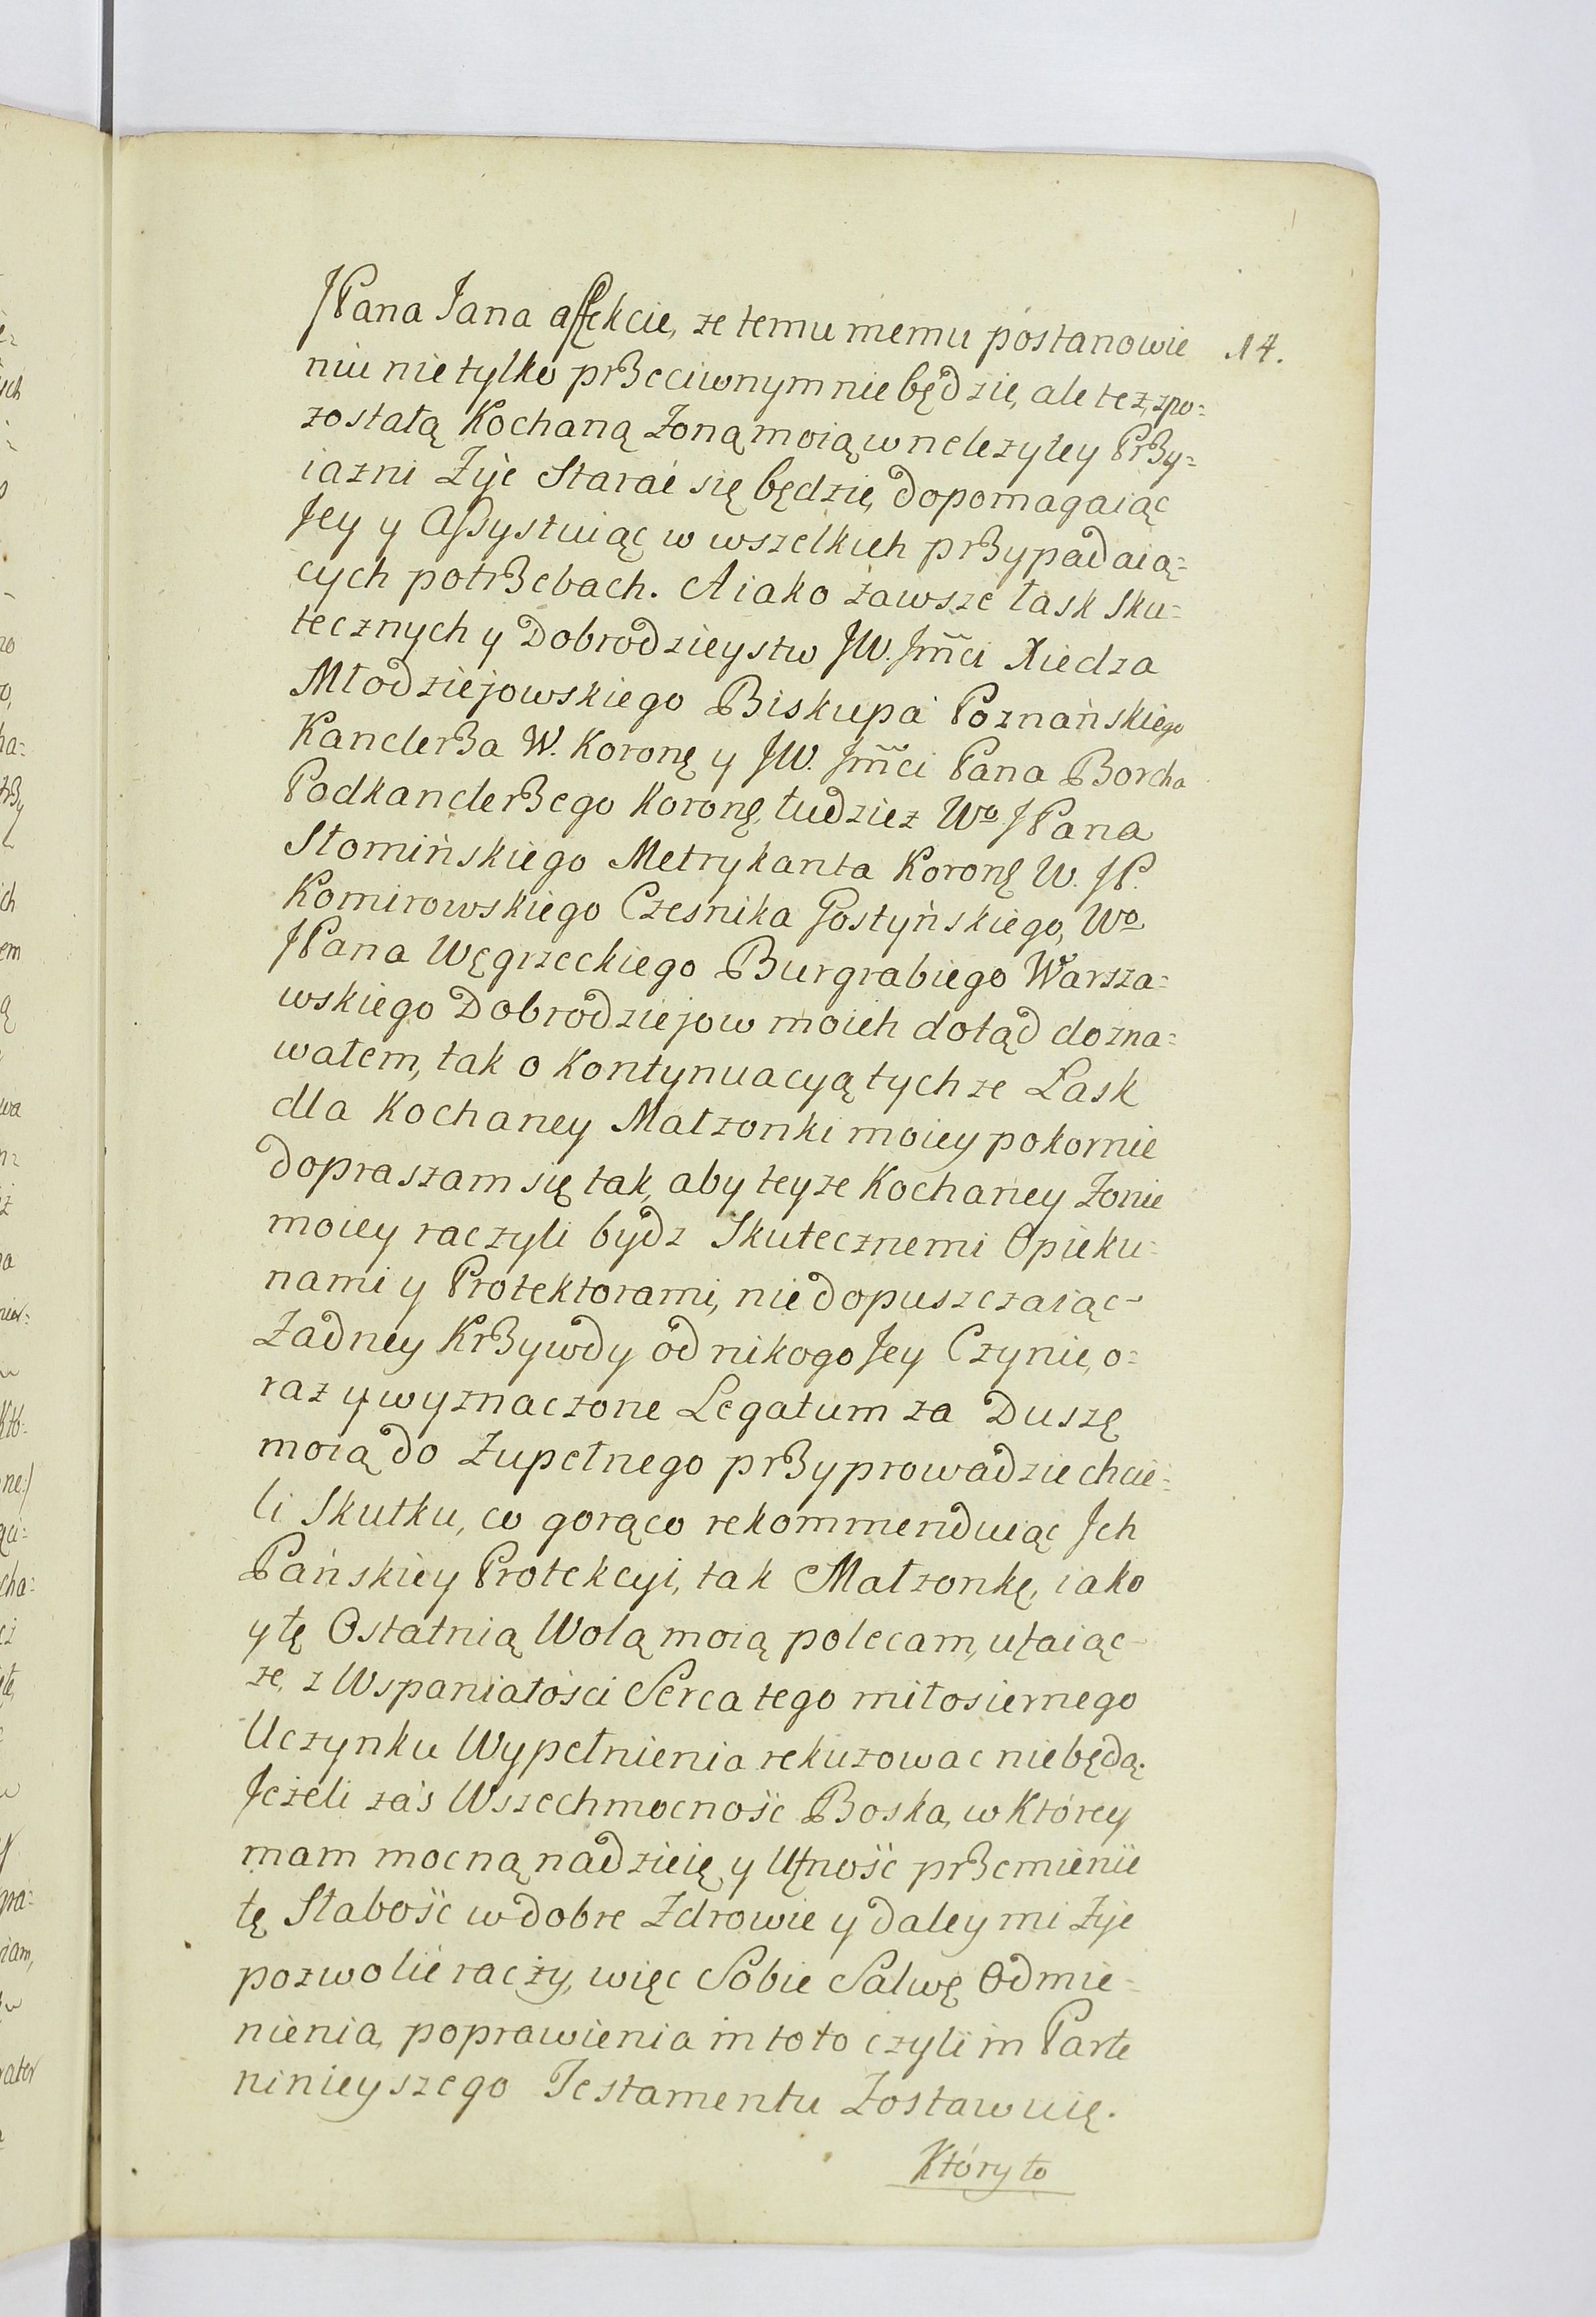 JPana Jana affekcie, że temu memu postanowie
14.
niu nie tylko przeciwnym nie będzie, ale też, z po=
zostałą Kochaną Żoną moią w należytey Przy=
iaźni Żyć Starać się będzie, dopomagaiąc
Jey y Assystuiąc w wszelkich przypadaią=
cych potrzebach. A iako zawsze łask sku=
tecznych y Dobrodzieystw JW. Jmci Xiedza
Młodziejowskiego Biskupa Poznańskiego
Kanclerza W. Koronę y JW. Jmci Pana Borcha
Podkanclerzego Koronę, tudzież Wo JPana
Słomińskiego Metrykanta Koronę W. JP.
Komirowskiego Czesnika Gostyńskiego, Wo
JPana Węgrzeckiego Burgrabiego Warsza=
wskiego Dobrodziejow moich dotąd dozna=
wałem, tak o kontynuacyą tychże Łask
dla Kochaney Małżonki moiey pokornie
dopraszam się tak, aby teyże Kochaney Żonie
moiey raczyli bydz Skutecznemi Opieku=
nami y Protektorami, nie dopuszczaiąc
Żadney Krzywdy od nikogo Jey Czynić, o=
raz y wyznaczone Legatum za Duszę
moią do Zupełnego przyprowadzić chcie=
li Skutku, co gorąco rekommenduiąc Jch
Pańskiey Protekcyi, tak Małżonkę, iako
y tę Ostatnią Wolą moią polecam, ufaiąc
że, z Wspaniałości Serca tego miłosiernego
Uczynku Wypełnienia rekuzowac nie będą.
Jeżeli zaś Wszechmocność Boska, w Którey
mam mocną nadzieię y Ufność przemienić
tę Słabość w dobre Zdrowie y daley mi żyć
pozwolić raczy, więc Sobie Salwę Odmie=
nienia, poprawienia in toto czyli in Parte
ninieyszego Testamentu Zostawuię.
Który to